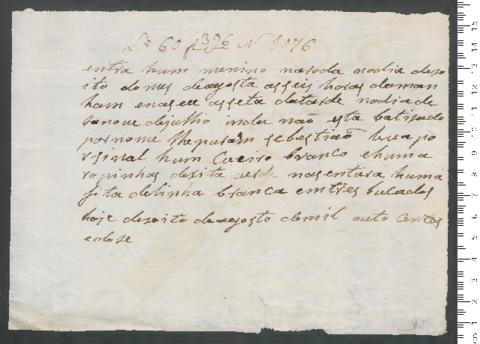 Lº 60 f 326 N 1076
entra hum menino naroda nodia dezo
ito domes deagosta asseis horas daman
ham enaseu asseta datarde nodia de
dejulho inda não esta batizado
por nome lhepuzam sebastiaõ leva po
r sinal hum Cueiro branco ehuma
ropinhas dexita nasentura huma
fita delinha branca emtres
hoje dezoito deagosto demil outo Centos
edose